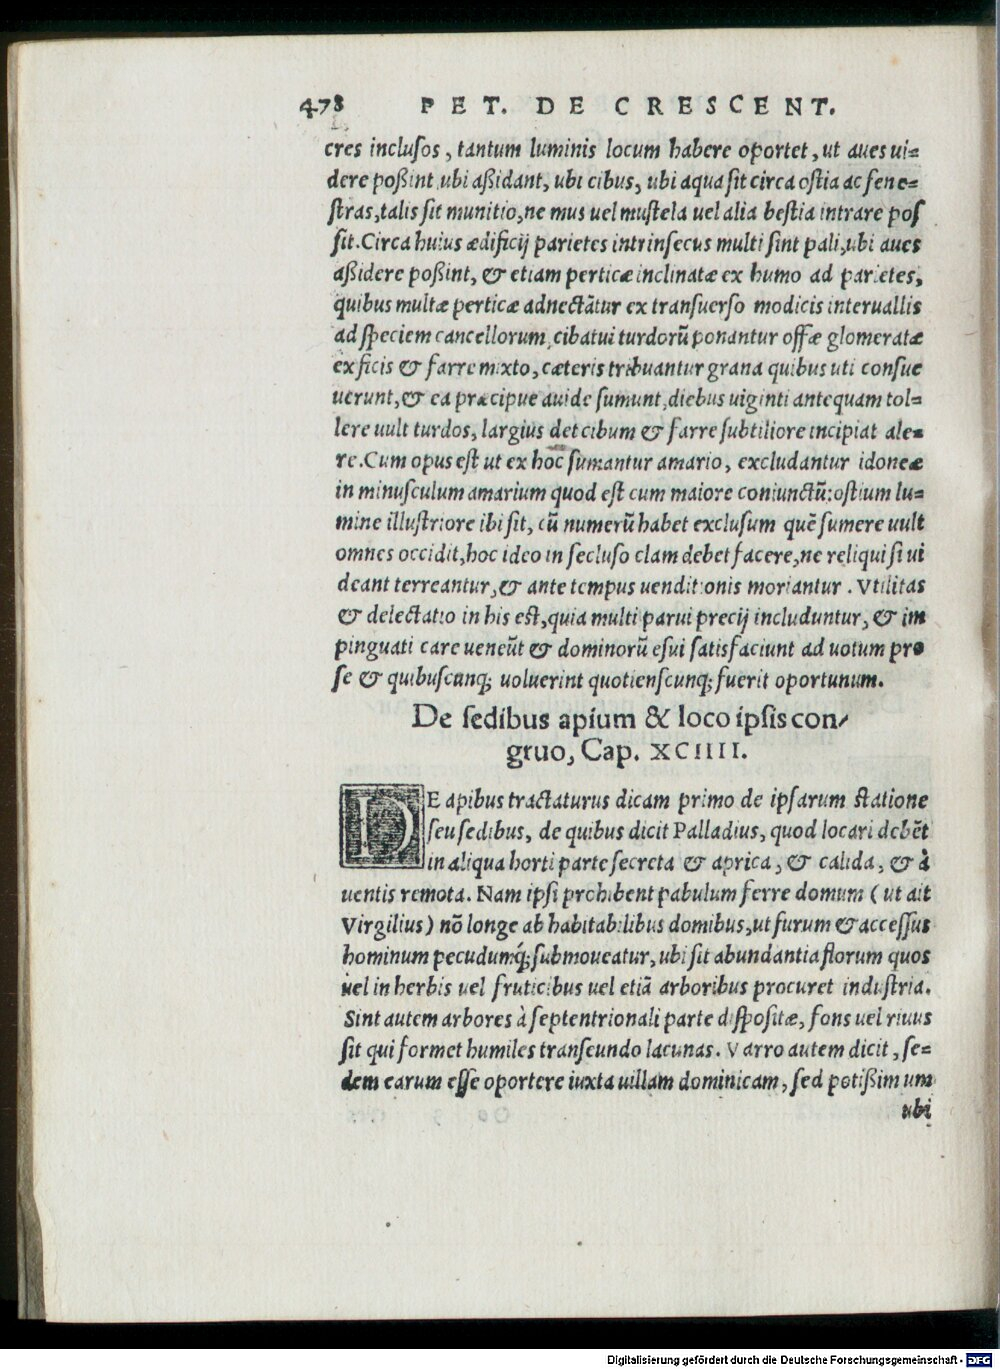 478 PET. DE CRESCENT.
cres inclusos, tantum luminis locum habere oportet, ut aues ui=
dere poßint ubi aßidant, ubi cibus, ubi aqua sit circa ostia ac fene=
stras, talis sit munitio, ne mus uel mustela uel alia bestia intrare pos
sit. Circa huius ædificij parietes intrinsecus multi sint pali, ubi aues
aßidere poßint, & etiam perticæ inclinatæ ex humo ad parietes,
quibus multæ perticæ adnectãtur ex transuerso modicis interuallis
ad speciem cancellorum, cibatui turdorũ ponantur offæ glomeratæ
ex ficis & farre mixto, cæteris tribuantur grana quibus uti consue
uerunt, & ea præcipue auide sumunt, diebus uiginti antequam tol=
lere uult turdos, largius det cibum & farre subtiliore incipiat ale=
re. Cum opus est ut ex hoc sumantur amario, excludantur idoneæ
in minusculum amarium quod est cum maiore coniunctũ: ostium lu=
mine illustriore ibi sit, cũ numerũ habet exclusum quẽ sumere uult
omnes occidit, hoc ideo in secluso clam debet facere, ne reliqui si ui
deant terreantur, & ante tempus uenditionis moriantur. Vtilitas
& delectatio in his est, quia multi parui precij includuntur, & im
pinguati care ueneũt & dominorũ esui satisfaciunt ad uotum pro
se & quibuscunq; uoluerint quotienscunq; fuerit oportunum.
De sedibus apium & loco ipsis con/
gruo, Cap. XCIIII.
DE apibus tractaturus dicam primo de ipsarum statione
seu sedibus, de quibus dicit Palladius, quod locari debẽt
in aliqua horti parte secreta & aprica, & calida, & à
uentis remota. Nam ipsi prohibent pabulum ferre domum (ut ait
Virgilius) nõ longe ab habitabilibus domibus, ut furum & accessus
hominum pecudumq́; submoueatur, ubi sit abundantia florum quos
uel in herbis uel fruticibus uel etiã arboribus procuret industria.
Sint autem arbores à septentrionali parte dispositæ, fons uel riuus
sit qui formet humiles transeundo lacunas. Varro autem dicit, se=
dem earum esse oportere iuxta uillam dominicam, sed potißimum
ubi
Digitalisierung gefördert durch die Deutsche Forschungsgemeinschaft - DFG